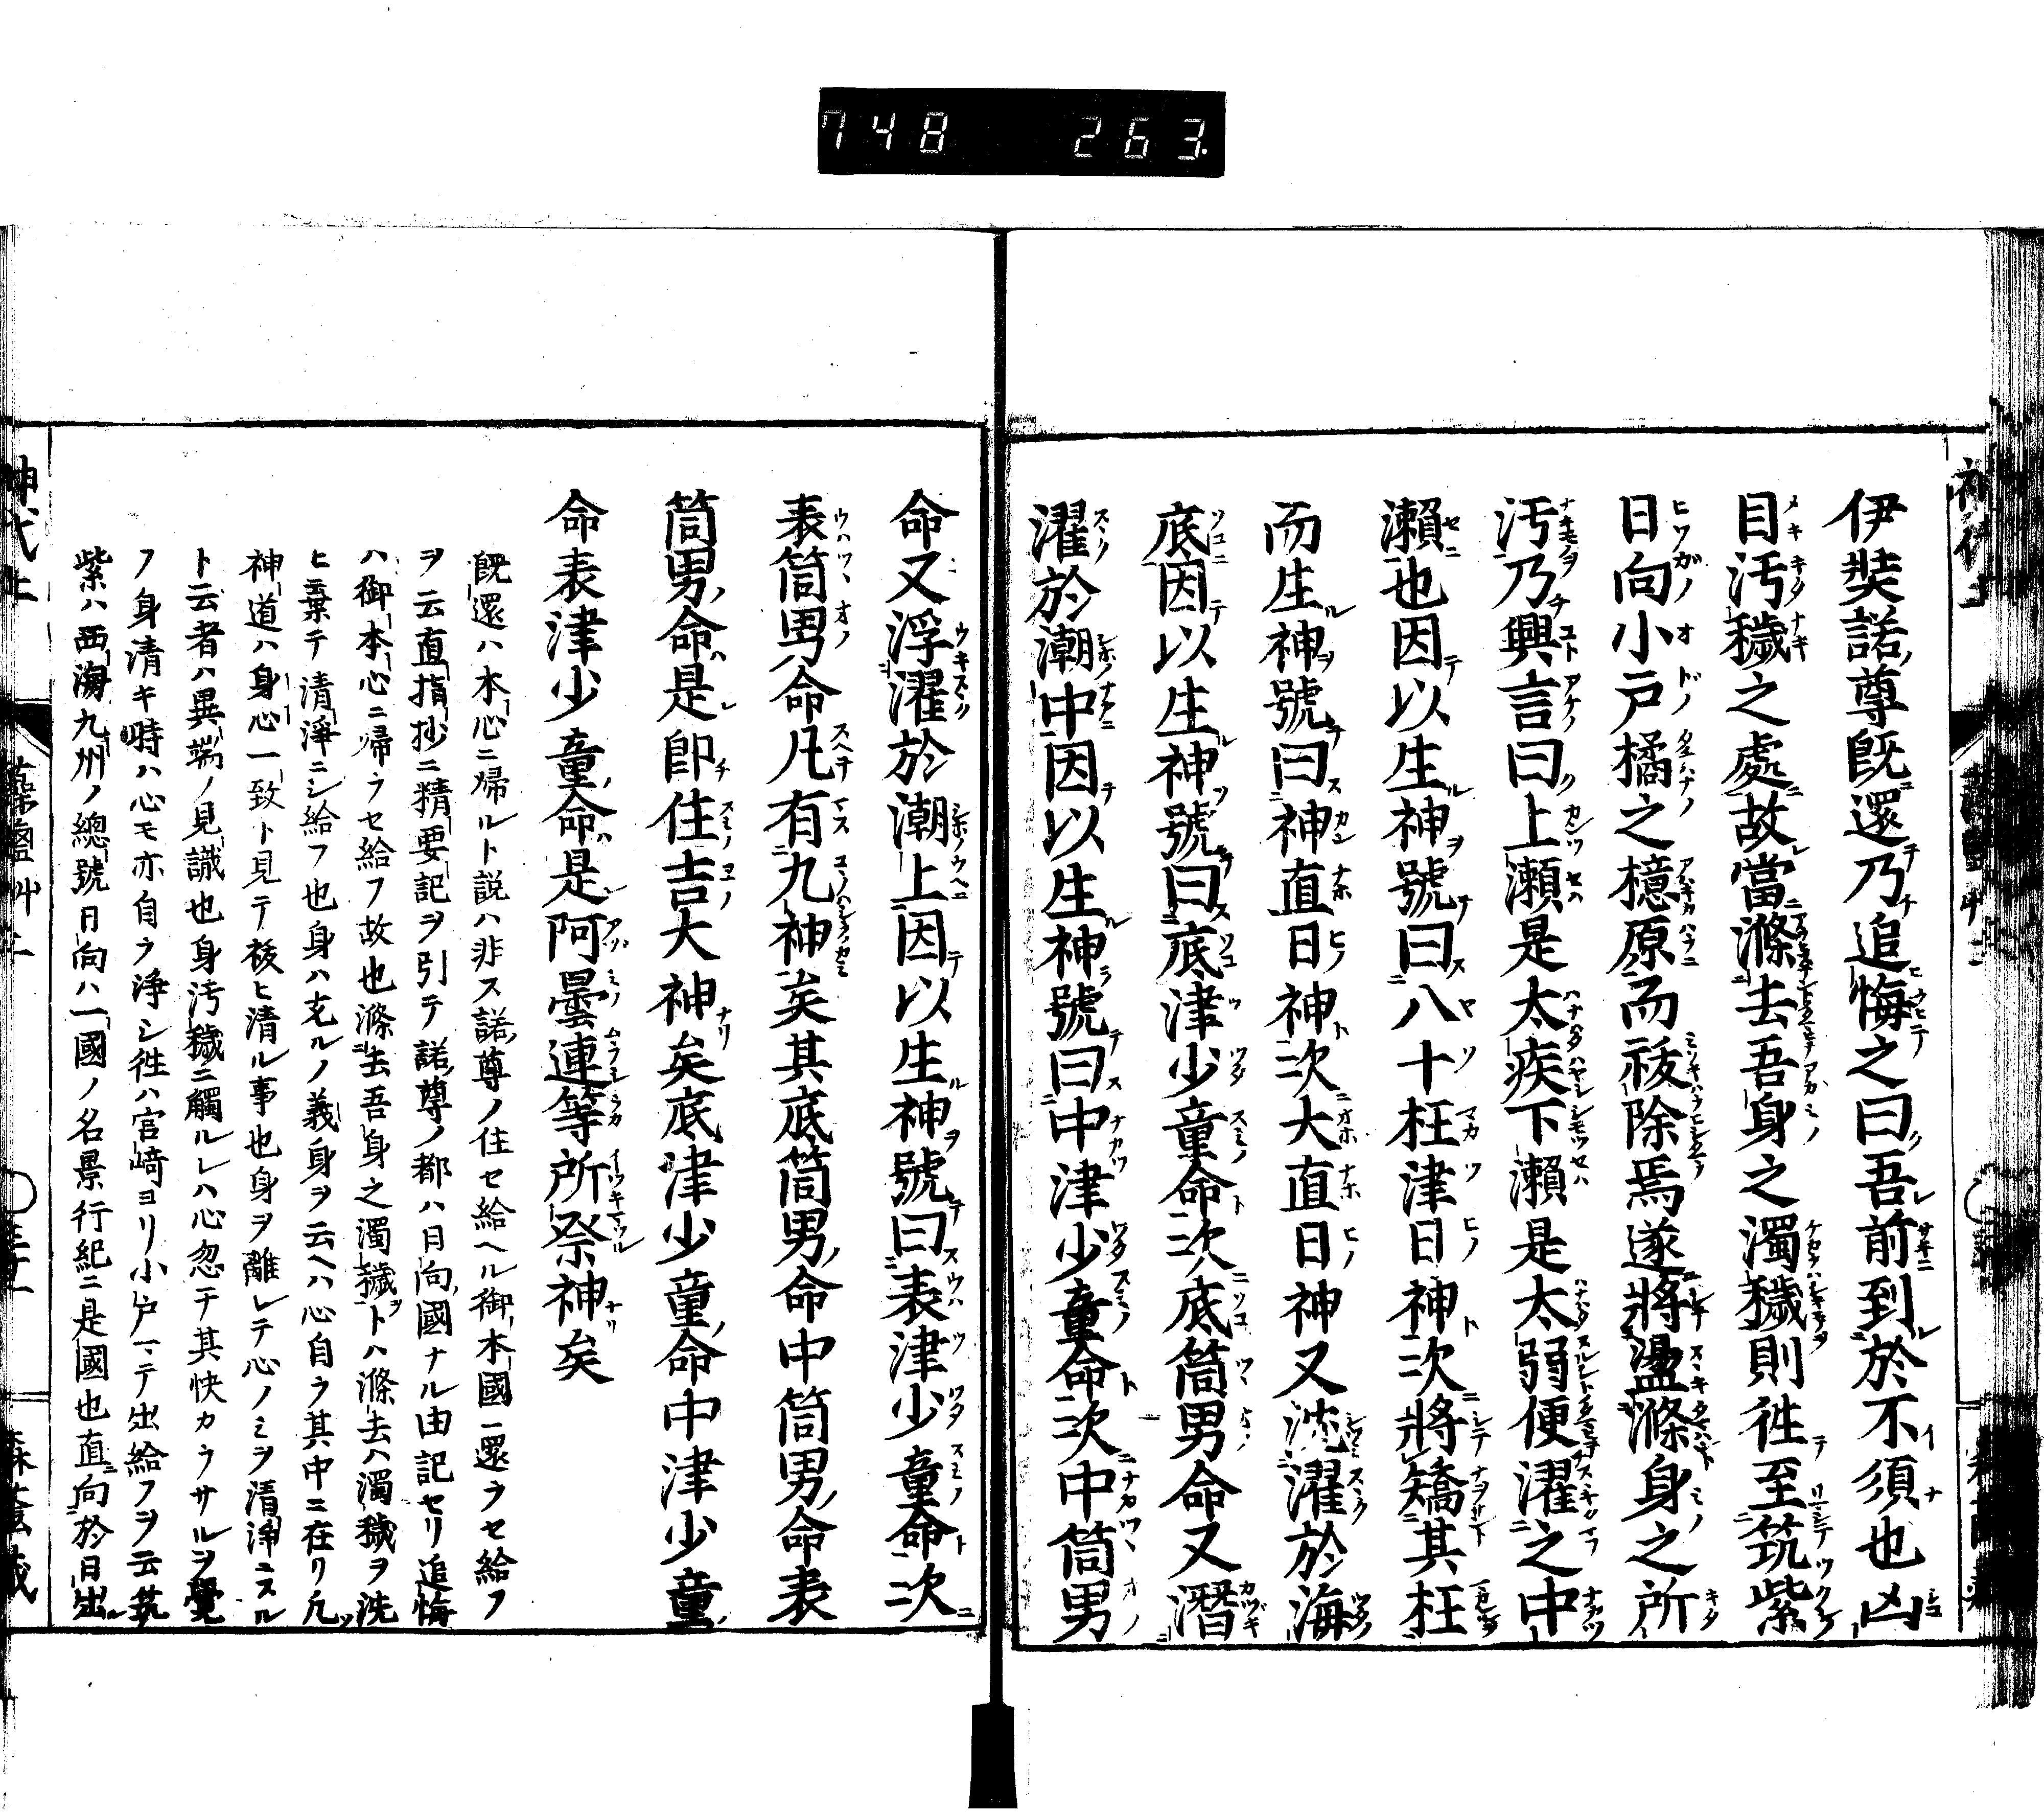 748 263
伊奘諾尊既還乃追悔之曰吾前到於不須也凶
目汚穢之處故當滌去吾身之濁穢則徃至筑紫
日向小戸橘之檍原而祓除焉遂將盪滌身之所
汚乃興言曰上瀬是太疾下瀬是太弱便濯之中
瀬也因以生神號曰八十枉津日神次將矯其枉
而生神號曰神直日神次大直日神又沈濯於海
底因以生神號曰底津少童命次底筒男命又潛
濯於潮中因以生神號曰中津少童命次中筒男
命又浮濯於潮上因以生神號曰表津少童命次
表筒男命凡有九神矣其底筒男命中筒男命表
筒男命是即住吉大神矣底津少童命中津少童
命表津少童命是阿曇連等所祭神矣
既還ハ本心ニ帰ルト説ハ非ス諾尊ノ住セ給ヘル御本國ニ還ラセ給フ
ヲ云直指抄ニ精要記ヲ引テ諾尊ノ都ハ日向國ナル由記セリ追悔
ハ御本心ニ帰ラセ給フ故也滌去吾身之濁穢トハ滌去ハ濁穢ヲ洗
ヒ棄テ清淨ニシ給フ也身ハ充ルノ義身ヲ云ヘハ心自ラ其中ニ在リ凡
神道ハ身心一致ト見テ祓ヒ清ル事也身ヲ離レテ心ノミヲ清淨ニスル
ト云者ハ異端ノ見識也身汚穢ニ觸ルレハ心忽チ其快カラサルヲ覺
フ身清キ時ハ心モ亦自ラ淨シ徃ハ宮﨑ヨリ小戸ヘテ出給フヲ云筑
紫ハ西海九州ノ總號日向ハ一國ノ名景行紀ニ是國也直向於日出
神代上